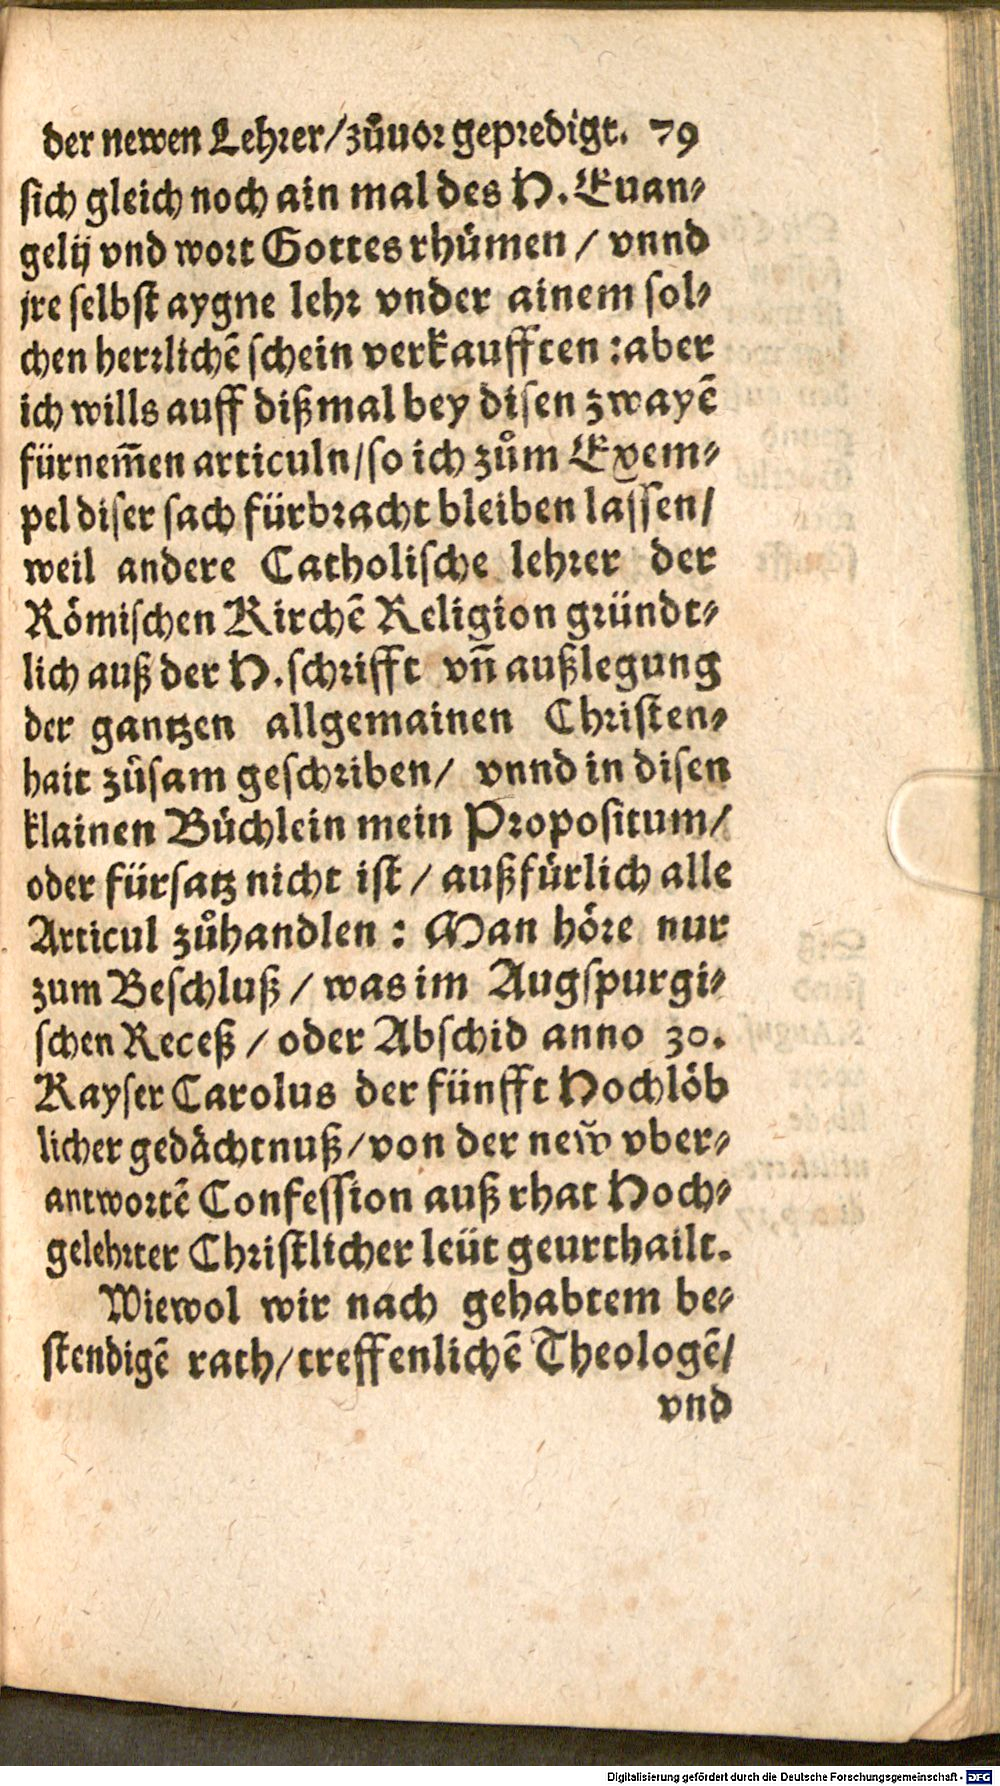 der newen Lehrer/zůuor gepredigt. 79
sich gleich noch ain mal des H. Euan⸗
gelij vnd wort Gottes rhůmen / vnnd
jre selbst aygne lehr vnder ainem sol⸗
chen herrlichẽ schein verkaufften : aber
ich wills auff dißmal bey disen zwayẽ
fürnem̃en articuln/so ich zům Exem⸗
pel diser sach fürbracht bleiben lassen/
weil andere Catholische lehrer der
Römischen Kirchẽ Religion gründt⸗
lich auß der H. schrifft vñ außlegung
der gantzen allgemainen Christen⸗
hait zůsam geschriben/ vnnd in disen
klainen Büchlein mein Propositum/
oder fürsatz nicht ist / außfürlich alle
Articul zůhandlen : Man höre nur
zum Beschluß / was im Augspurgi⸗
schen Receß / oder Abschid anno 30.
Kayser Carolus der fünfft Hochlöb
licher gedächtnuß/von der new̃ vber⸗
antwortẽ Confession auß rhat Hoch⸗
gelehrter Christlicher leüt geurthailt.
Wiewol wir nach gehabtem be⸗
stendigẽ rath/treffenlichẽ Theologẽ/
vnd
Digitalisierung gefördert durch die Deutsche Forschungsgemeinschaft - DFG